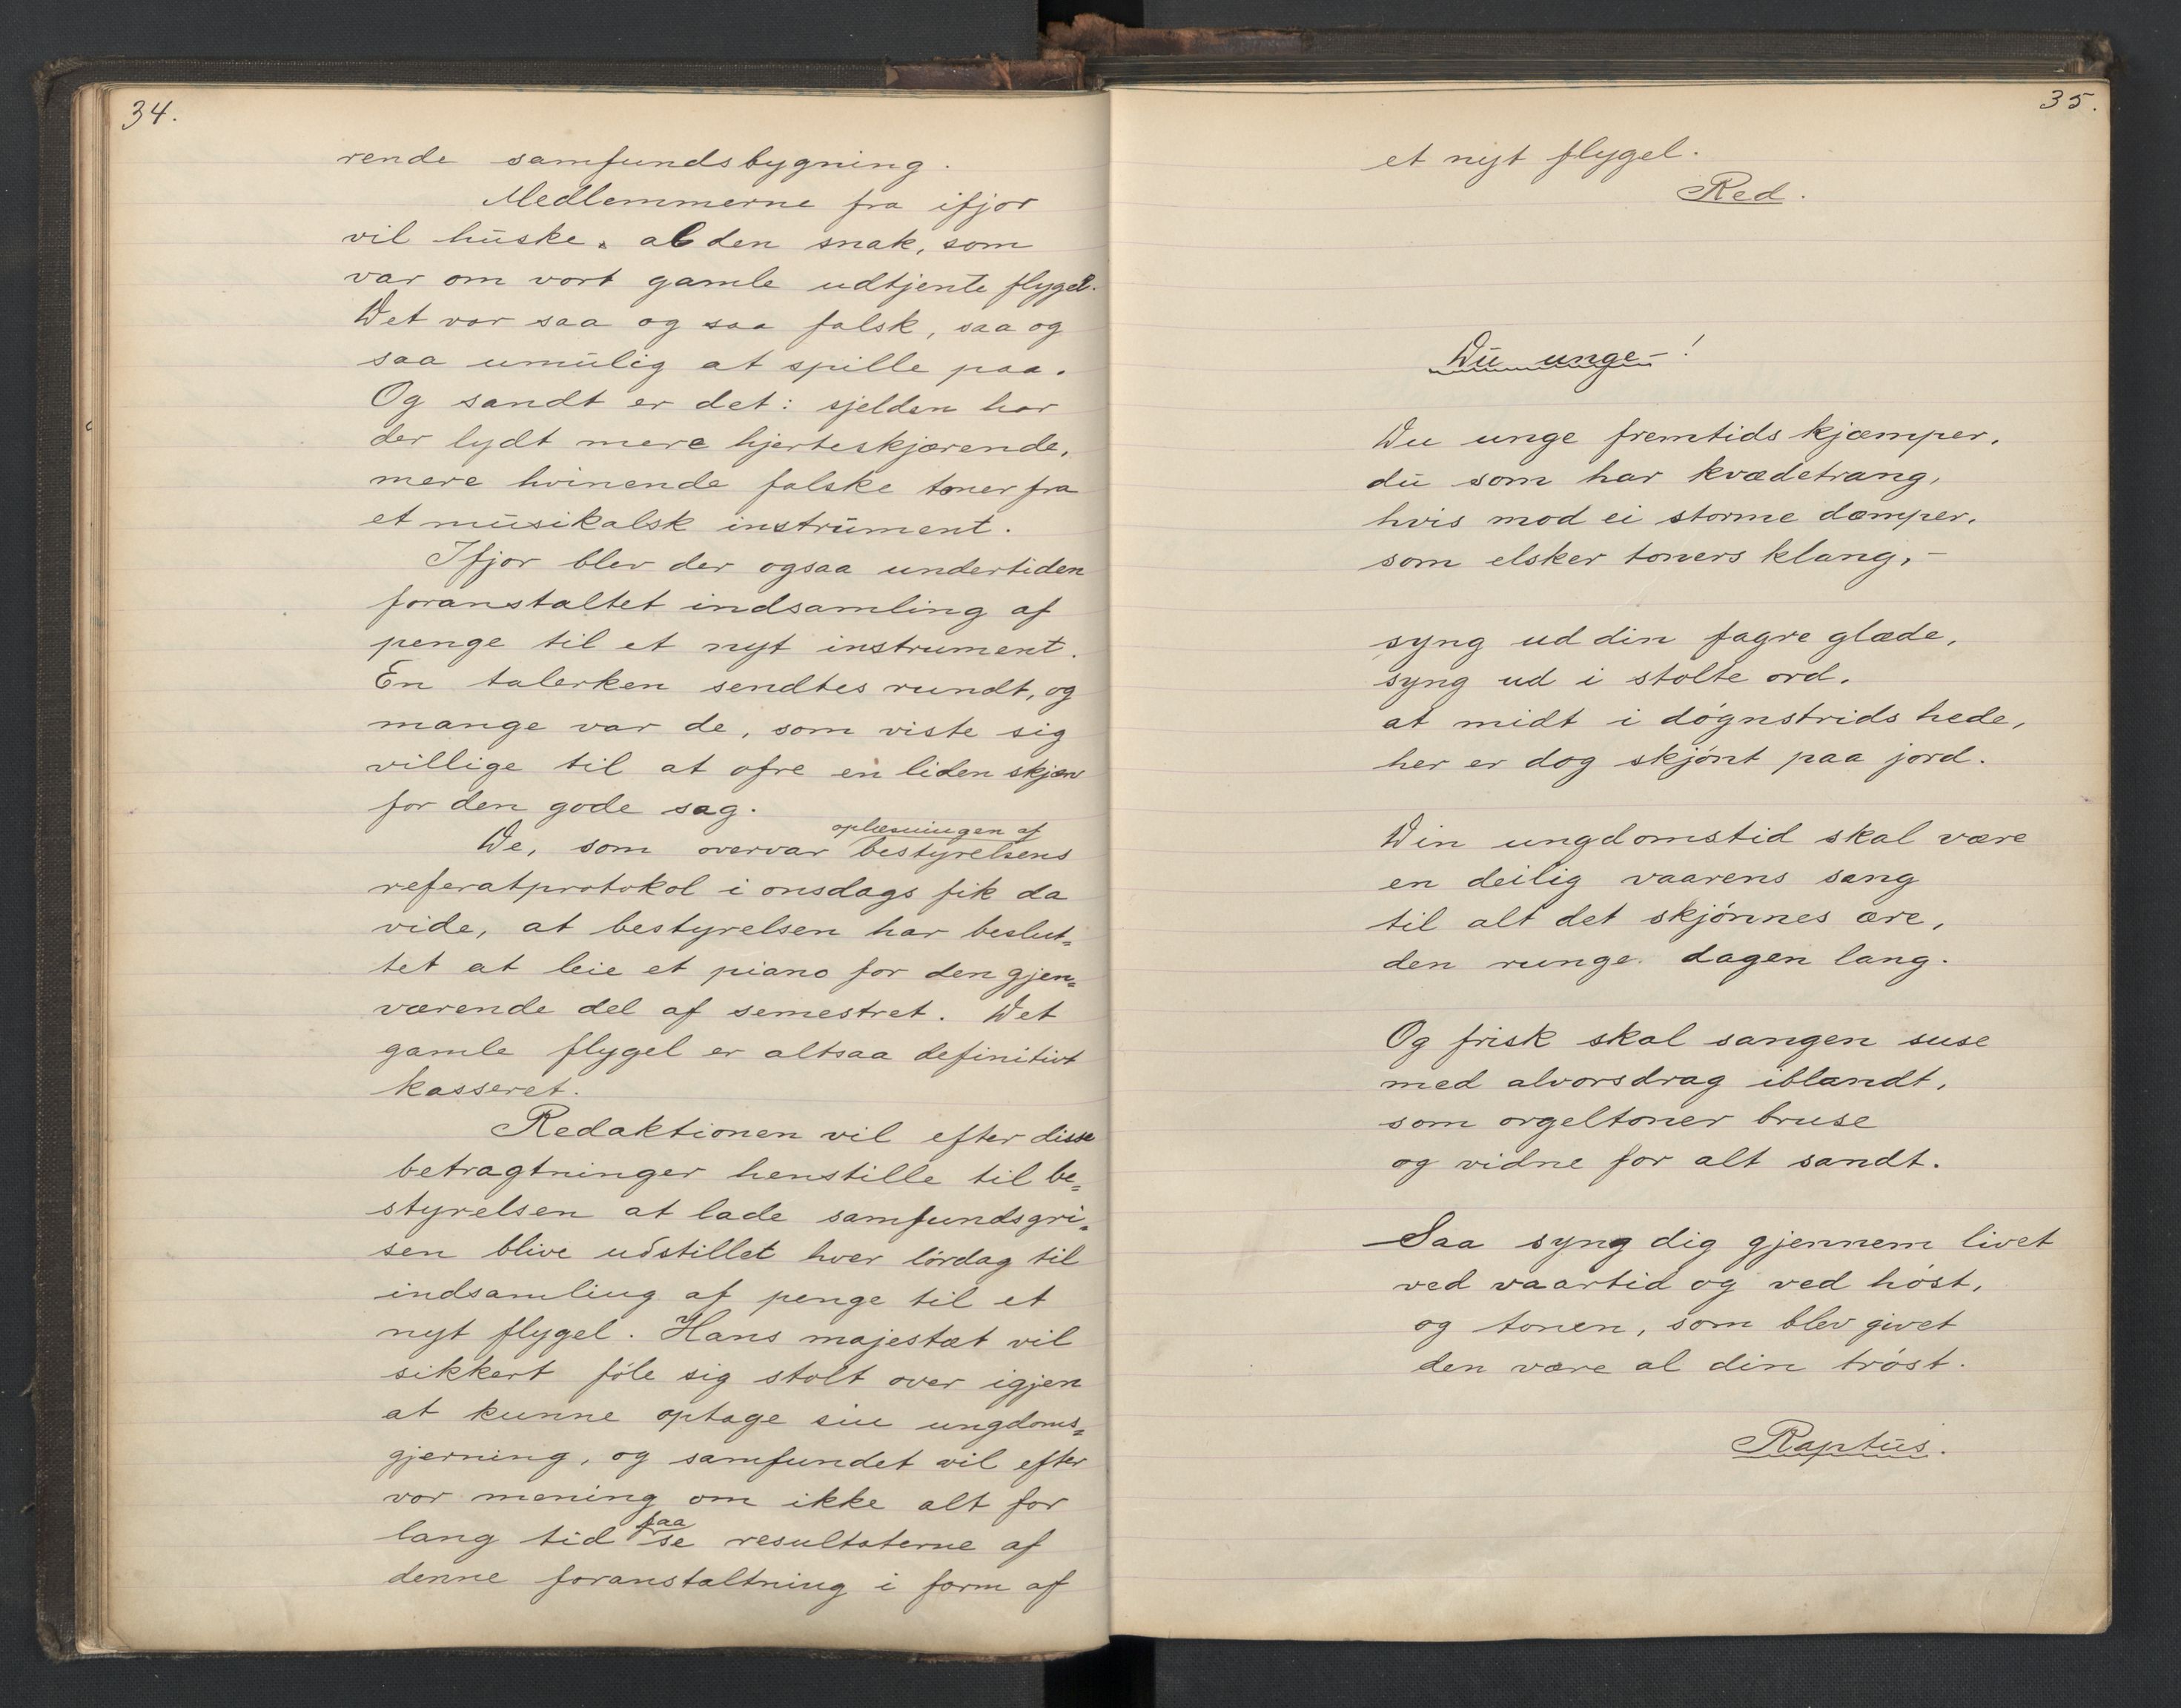 34.
rende samfundsbygning.
Medlemmerne fra ifjor
vil huske al den snak, som
var om vort gamle udtjente flygel.
Det var saa og saa falsk, saa og
saa umulig at spille paa.
Og sandt er det: sjelden har
der lydt mere hjerteskjærende,
mere hvinende falske toner fra
et musikalsk instrument.
Ifjor blev der ogsaa undertiden
foranstaltet indsamling af
penge til et nyt instrument.
En talerken sendtes rundt, og
mange var de, som viste sig
villige til at ofre en liden skjærv
for den gode sag.
oplæsningen af
De, som overvar bestyrelsens
referatprotokol i onsdags fik da
vide, at bestyrelsen har beslut=
tet at leie et piano for den gjen=
værende del af semestret. Det
gamle flygel er altsaa definitivt
kasseret.
Redaktionen vil efter disse
betragtninger henstille til be=
styrelsen at lade samfundsgri=
sen blive udstillet hver lördag til
indsamling af penge til et
nyt flygel. Hans majestæt vil
sikkert föle sig stolt over igjen
at kunne optage sin ungdoms=
gjerning, og samfundet vil efter
vor mening om ikke alt for
faa
lang tid se resultaterne af
denne foranstaltning i form af
35.
et nyt flygel.
Red.
Du unge-!
Du unge fremtids kjæmper,
du som har kvædetrang,
hvis mod ei storme dæmper,
som elsker toners klang, -
syng ud din fagre glæde,
syng ud i stolte ord,
at midt i dögnstrids hede,
her er dog skjönt paa jord.
Din ungdomstid skal være
en deilig vaarens sang
til alt det skjönnes ære,
den runge dagen lang.
Og frisk skal sangen suse
med alvorsdrag iblandt,
som orgeltoner bruse
og vidne for alt sandt.
Saa syng dig gjennem livet
ved vaartid og ved höst,
og tonen, som blev givet
den være al din tröst.
Raptus.